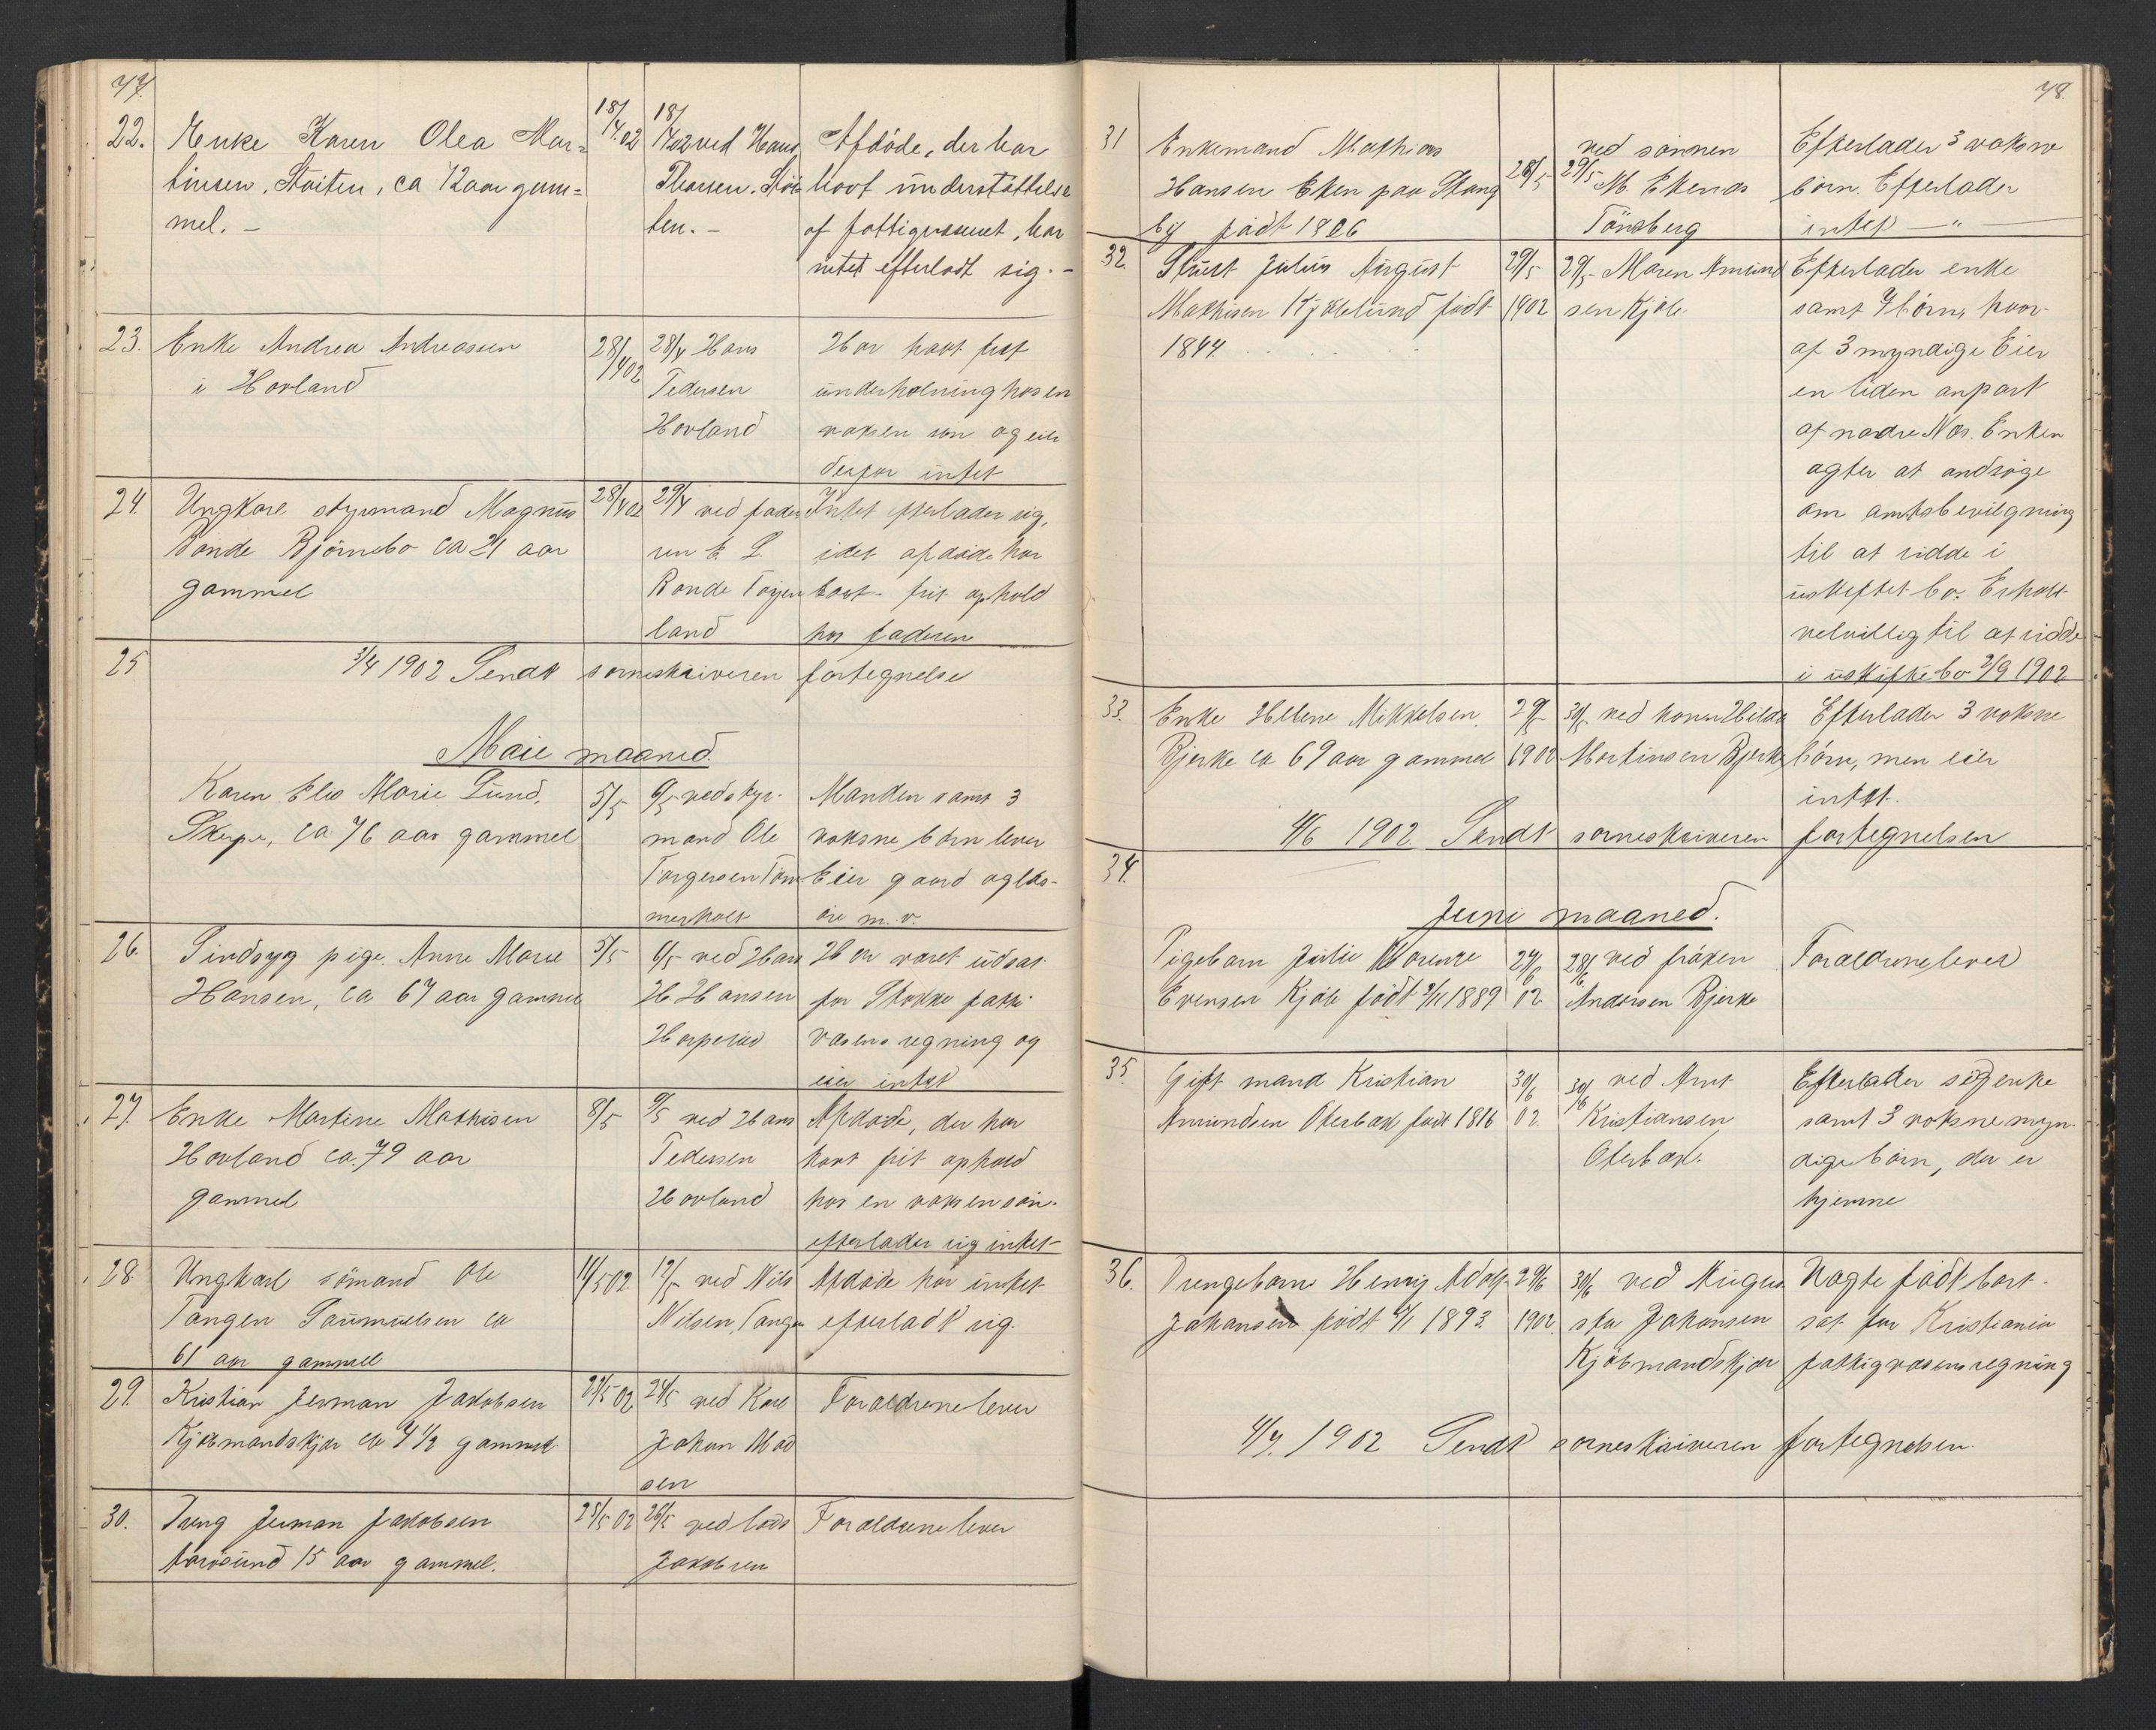 77.
22. Enke Karen Olea Mar=
tinsen, Støiten, ca 72 aar gam=
mel. –
18/4.02
18/4 02 ved Hans
Thorsen. Støi
ten. –
Afdöde, der har
havt understöttelse
af fattigvæsenet, har
intet efterladt sig. –
23. Enke Andrea Andreassen
i Hovland
28/4 02
28/4 Hans
Pedersen
Hovland
Har havt frit
underholning hos en
voksen sön og eier
derfor intet
24. Ungkarl styrmand Magnus
Bonde Björnebo ca 21 aar
gammel
28/4 02
29/4 ved fade
ren E. L.
Bonde
land
Intet efterlader sig,
idet afdöde har
havt frit ophold
hos faderen
25 3/4 1902 Sendt sorenskriveren fortegnelse
Maie maaned.
Karen Elis Marie Lund,
ca 76 aar gammel
5/5
6/5 ved styr-
mand Ole
Torgersen Töm
merholt
Manden samt 3
voksne börn lever
Eier gaard og lös-
öre m.v.
26. Sindsyg pige Anne Marie
Hansen, ca 67 aar gammel
5/5
6/5 ved Hans
H. Hansen
Harperöd
Har været udsat
for Stokke fatti
væsens regning og
eier intet
27. Enke Martine Mathisen
Hovland ca. 79 aar
gammel
8/5
9/5 ved Hans
Pedersen
Hovland
Afdöde, der har
havt frit ophold
hos en voksen sön.
efterlader sig intet
28. Ungkarl sömand Ole
Tangen Sammuelsen ca
61 aar gammel
11/5 02
12/5 ved Nils
Nilsen, Tangen
Afdöde har intet
efterladt sig.
29. Kristian Jerman Jakobsen
Kjöbmandskjær ca 4 1/2 gammel
21/5 02
24/5 ved Karl
Johan Mad
sen
Forældrene lever
30. Dreng Jerman Jakobsen
15 aar gammel.
25/5 02
26/5 ved lods
Jakobsen
Forældrene lever
78.
31 Enkemand Mathias
Hansen Eken paa Stang
by födt 1826
28/5
29/5 ved sönnen
M. Ekenæs
Tönsberg
Efterlader 3 voksne
börn. Efterlader
intet – " –
32. Julius August
Mathisen Kjöbelund födt
1844.
29/5
1902
29/5 Maren Amund
sen Kjöle
Efterlader enke
samt 4 börn, hvor-
af 3 myndige Eier
en liden anpart
af nedre Nes. Enken
agter at andsöge
om amtsbevilgning
til at sidde i
uskiftet bo. Erholdt
velvillig til at sidde
i uskifte bo 2/9 1902
33. Enke Helene Mikkelsen
Bjerke ca 69 aar gammel
29/5
1902
30/5 ved kone Hilda
Martinsen Bjerke
Efterlader 3 voksne
börn, men eier
intet.
4/6 1902. Sendt sorenskriveren fortegnelsen
34.
Juni maaned.
Pigebarn Julie Marense
Evensen Kjöle födt 2/11 1889
27/6
02
28/6 ved fröken
Andersen Bjerke
Forældrene lever
35. Gift mand Kristian
Amundsen Oterbæk födt 1816
30/6
02.
30/6 ved Arnt
Kristiansen
Oterbæk.
Efterlader sig enke
samt 3 voksne myn-
dige börn, der er
hjemme
36. Drengebarn Henrij Adolf
Johansen födt 4/1 1893.
29/6
1902.
30/6 ved Augus
sta Johansen
Kjöbmandskjær
Uægte födt bort-
sat for Kristiania
fattigvæsens regning
4/7. 1902 Sendt sorenskriveren fortegnelsen.